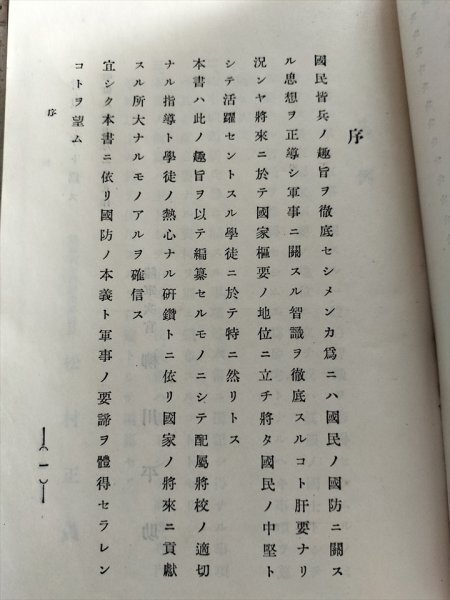 序
國民皆兵ノ趣旨ヲ徹底セシメンカ爲ニハ國民ノ國防ニ關ス
ル思想ヲ正導シ軍事ニ關スル智識ヲ徹底スルコト肝要ナリ
況ンヤ將來ニ於テ國家樞要ノ地位ニ立チ將タ國民ノ中堅ト
シテ活躍セントスル學徒ニ於テ特ニ然リトス
本書ハ此ノ趣旨ヲ以テ編纂セルモノニシテ配屬將校ノ適切
ナル指導ト學徒ノ熱心ナル研鑽トニ依リ國家ノ將來ニ貢獻
スル所大ナルモノアルヲ確信ス
宜シク本書ニ依リ國防ノ本義ト軍事ノ要諦ヲ體得セラレン
コトヲ望ム
序
(一)